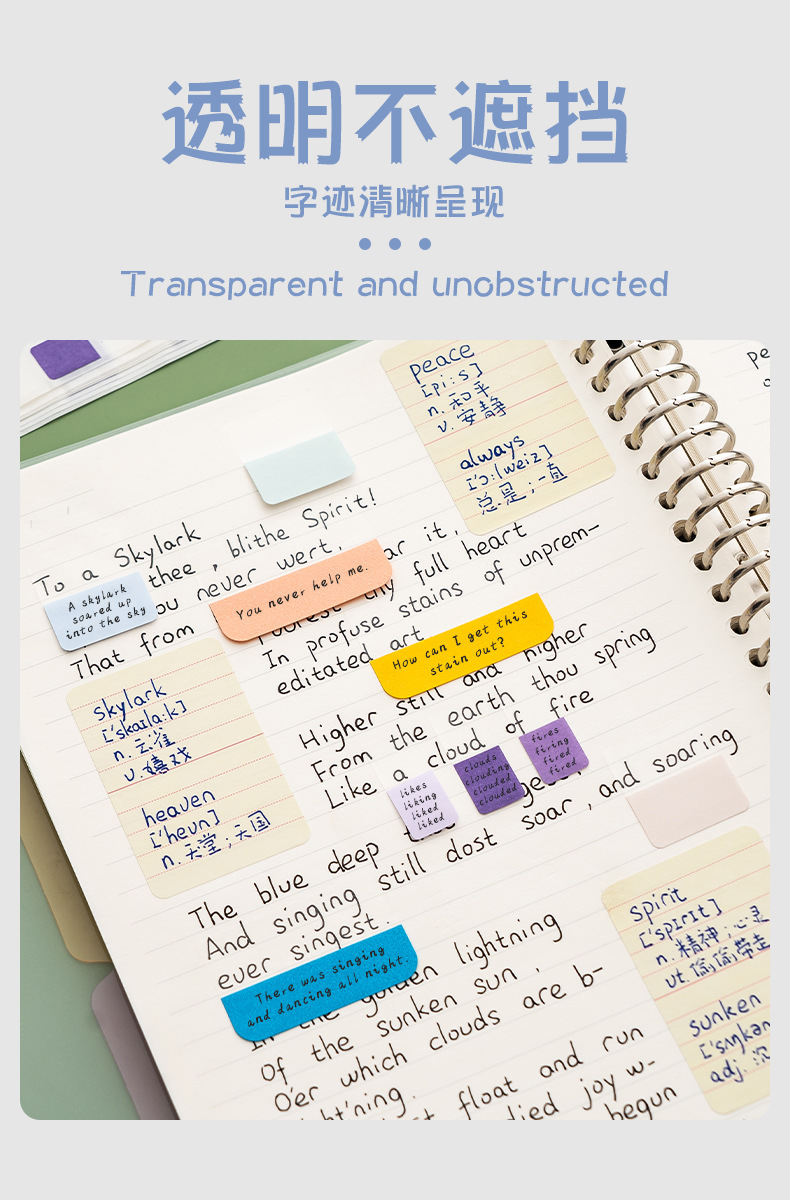 透明不遮挡
字迹清晰呈现
Transparent and unobstructed
peace
[pi:s]
n. 和平
v. 安静
always
['ɔ:(weiz]
总是;一直
To a Skylark
thee, blithe Spirit!
ou never wert,
ar it,
That from
thy full heart
In profuse stains of unprem-
editated art
A skylark
soared up
into the sky
You never help me.
How can I get this
stain out?
skylark
['skaila:k]
n. 云雀
v. 嬉戏
heaven
['hevn]
n. 天堂;天国
Higher still and higher
From the earth thou spring
Like a cloud of fire
likes
liking
liked
liked
clouds
clouding
clouded
clouded
fires
firing
fired
fired
The blue deep
soar, and soaring
And singing still dost
ever singest.
There was singing
and dancing all night.
In the golden lightning
Of the sunken sun,
O'er which clouds are b-
ht'ning.
float and run
died joy w-
begun
spirit
['spIrIt]
n. 精神,心灵
vt. 偷偷带走
sunken
adj.